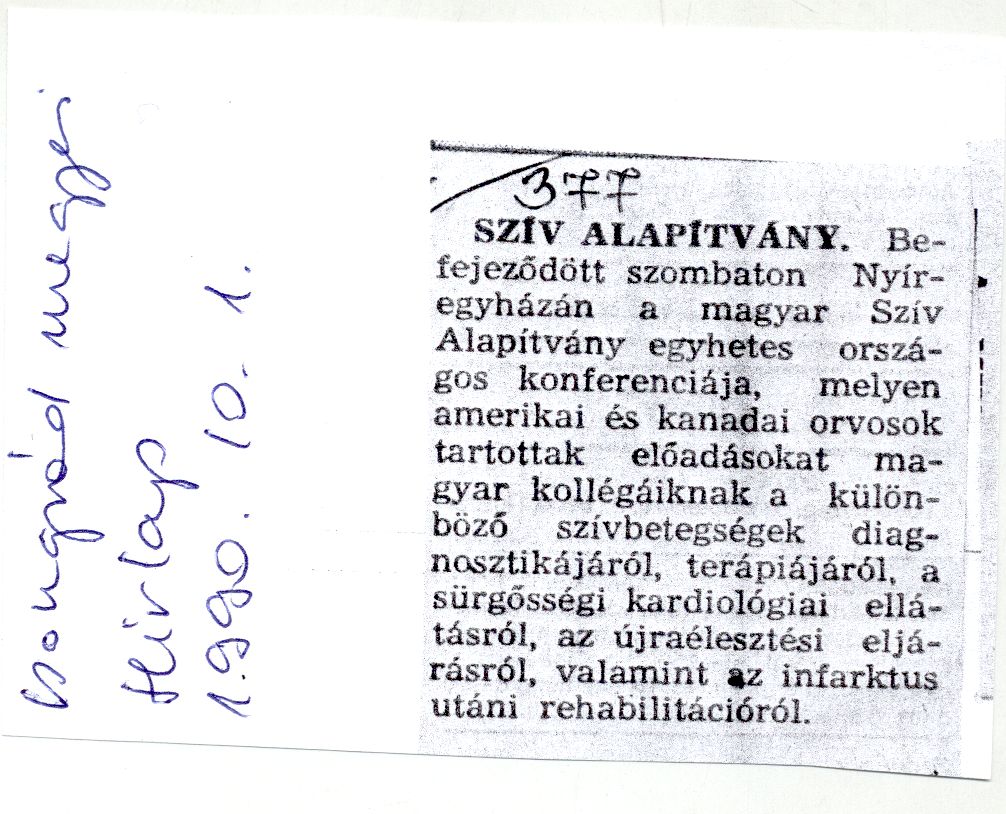 Csongrád megyei
Hírlap
1990. 10. 1.
377
SZÍV ALAPÍTVÁNY. Be-
fejeződött szombaton Nyír-
egyházán a magyar Szív
Alapítvány egyhetes orszá-
gos konferenciája, melyen
amerikai és kanadai orvosok
tartottak előadásokat ma-
gyar kollégáiknak a külön-
böző szívbetegségek diag-
nosztikájáról, terápiájáról, a
sürgősségi kardiológiai ellá-
tásról, az újraélesztési eljá-
rásról, valamint az infarktus
utáni rehabilitációról.